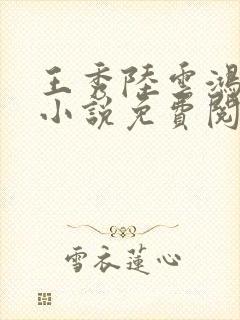 王秀陸雲鴻
小說免費閱
雪衣蓮心